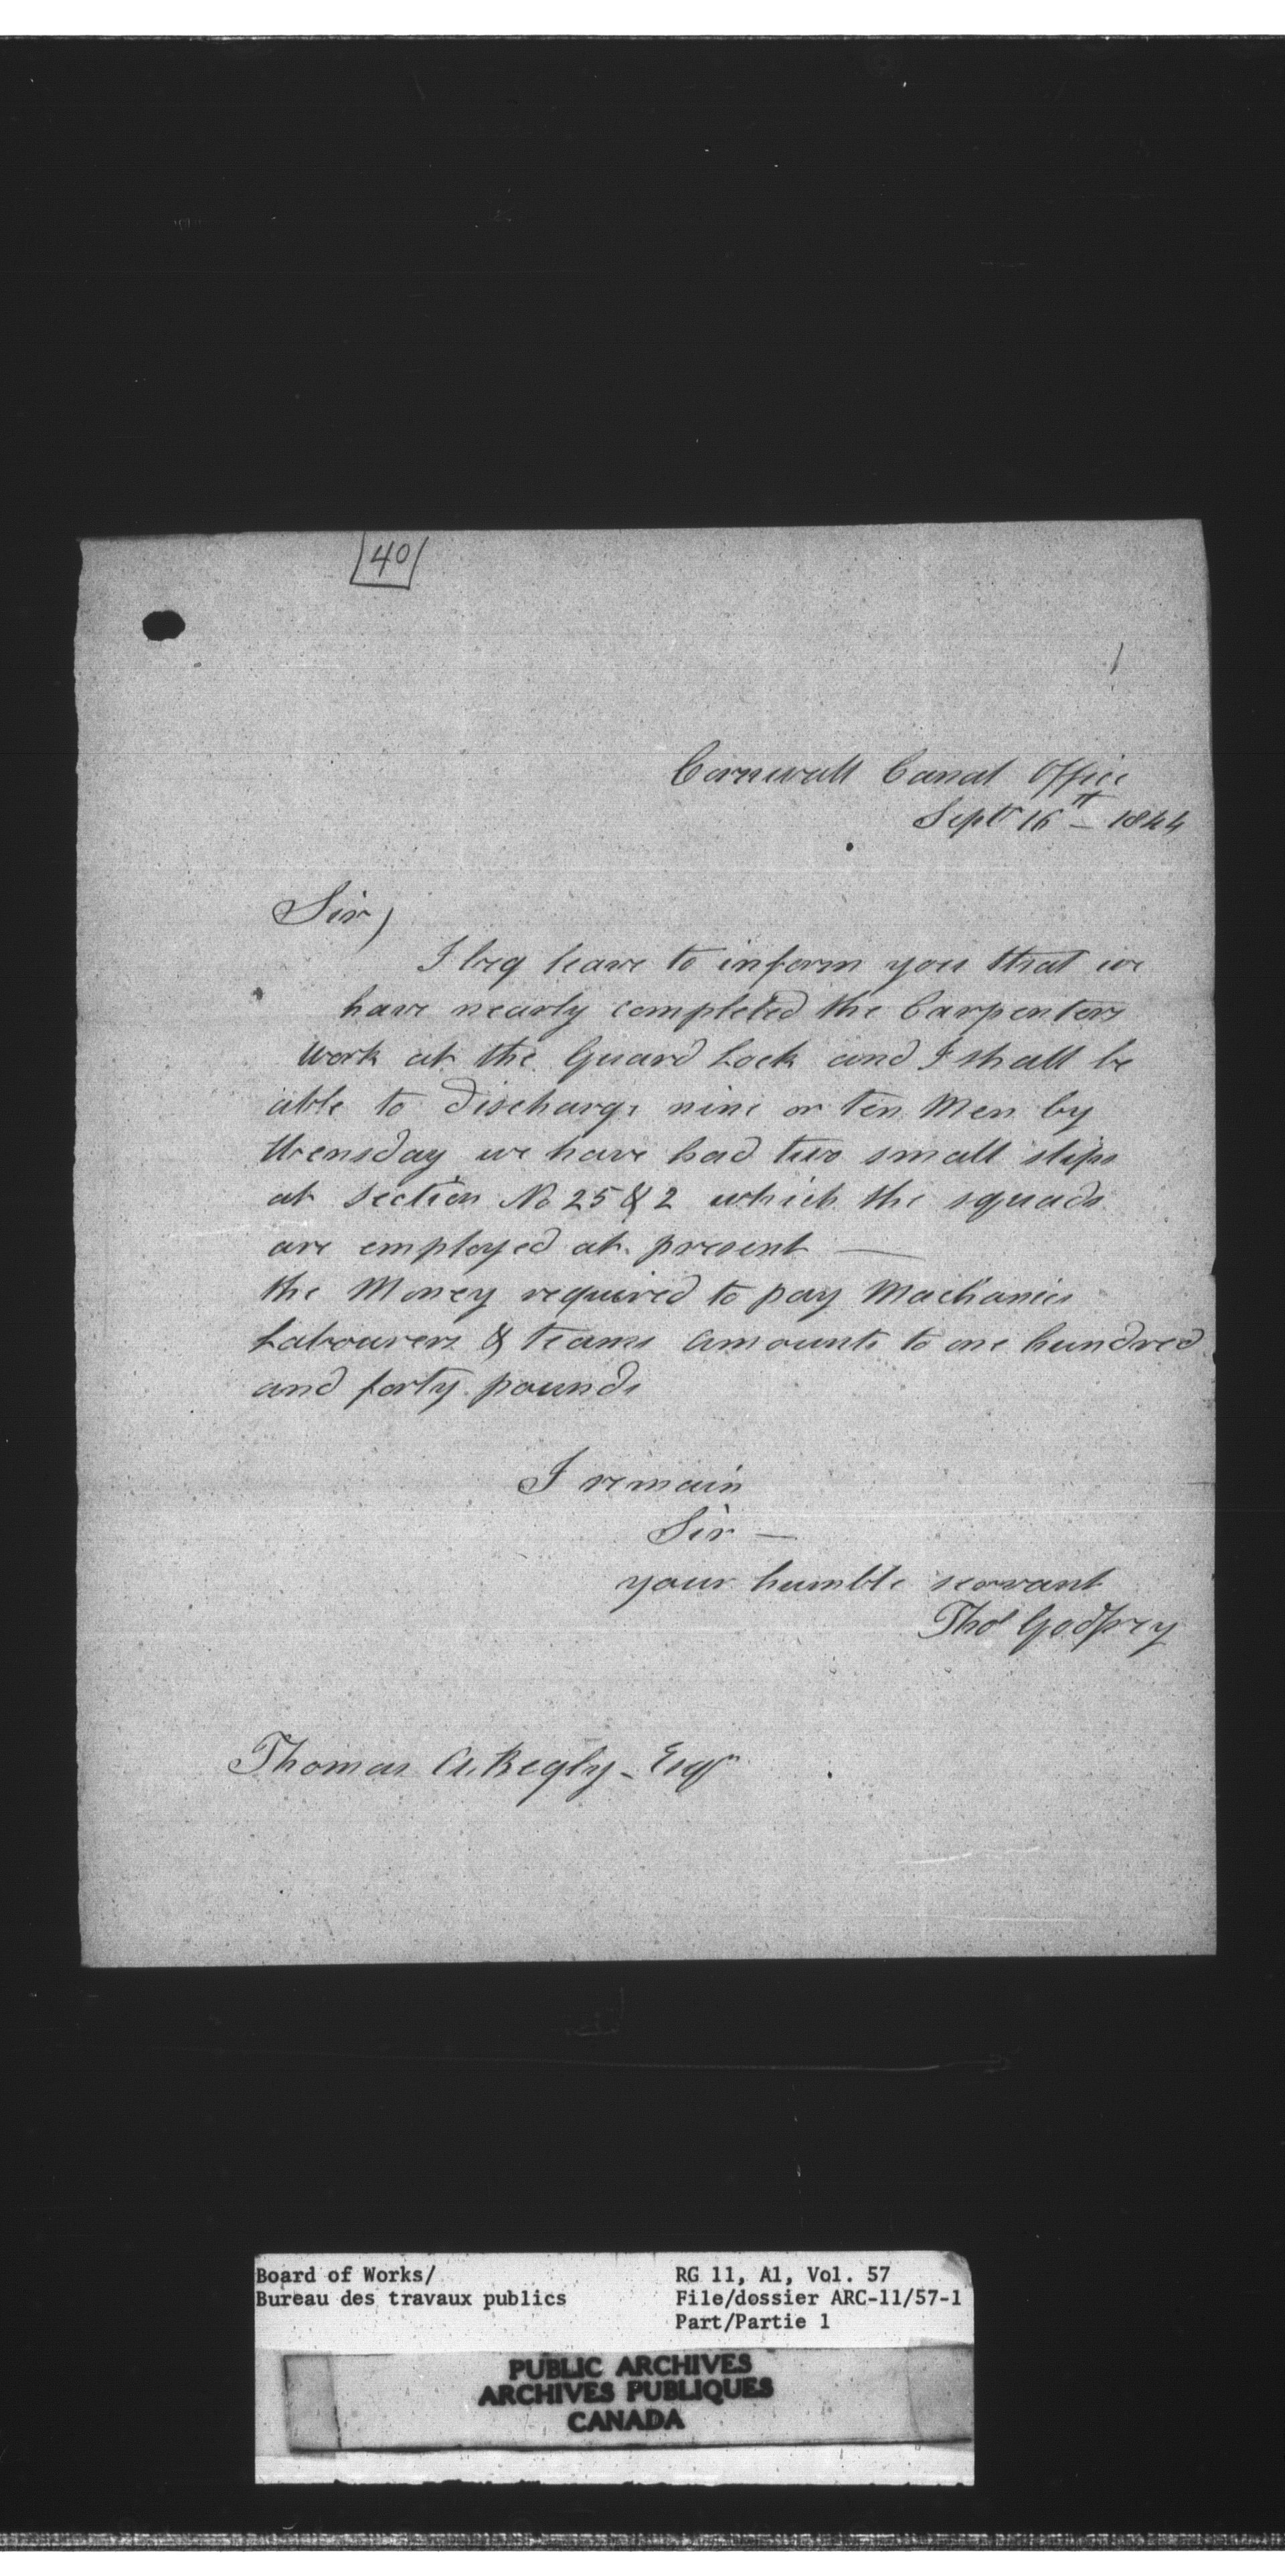 40
Cornwall Canal Office
Sept 16th – 1844
Sir,
I beg leave to inform you that we
have nearly completed the Carpenters
work at the Guard Lock and I shall be
able to discharge nine or ten Men by
Wensday we have had two small slips
at section No 25 & 2 which the squads
are employed at present —
the Money required to pay Machanics
Labourers & teams amounts to one hundred
and forty pounds
I remain
Sir —
your humble servant
Thos Godfrey
Thomas A. Begly - Esqr
Board of Works/
Bureau des travaux publics
RG 11, A1, Vol. 57
File/dossier ARC-11/57-1
Part/Partie 1
PUBLIC ARCHIVES
ARCHIVES PUBLIQUES
CANADA